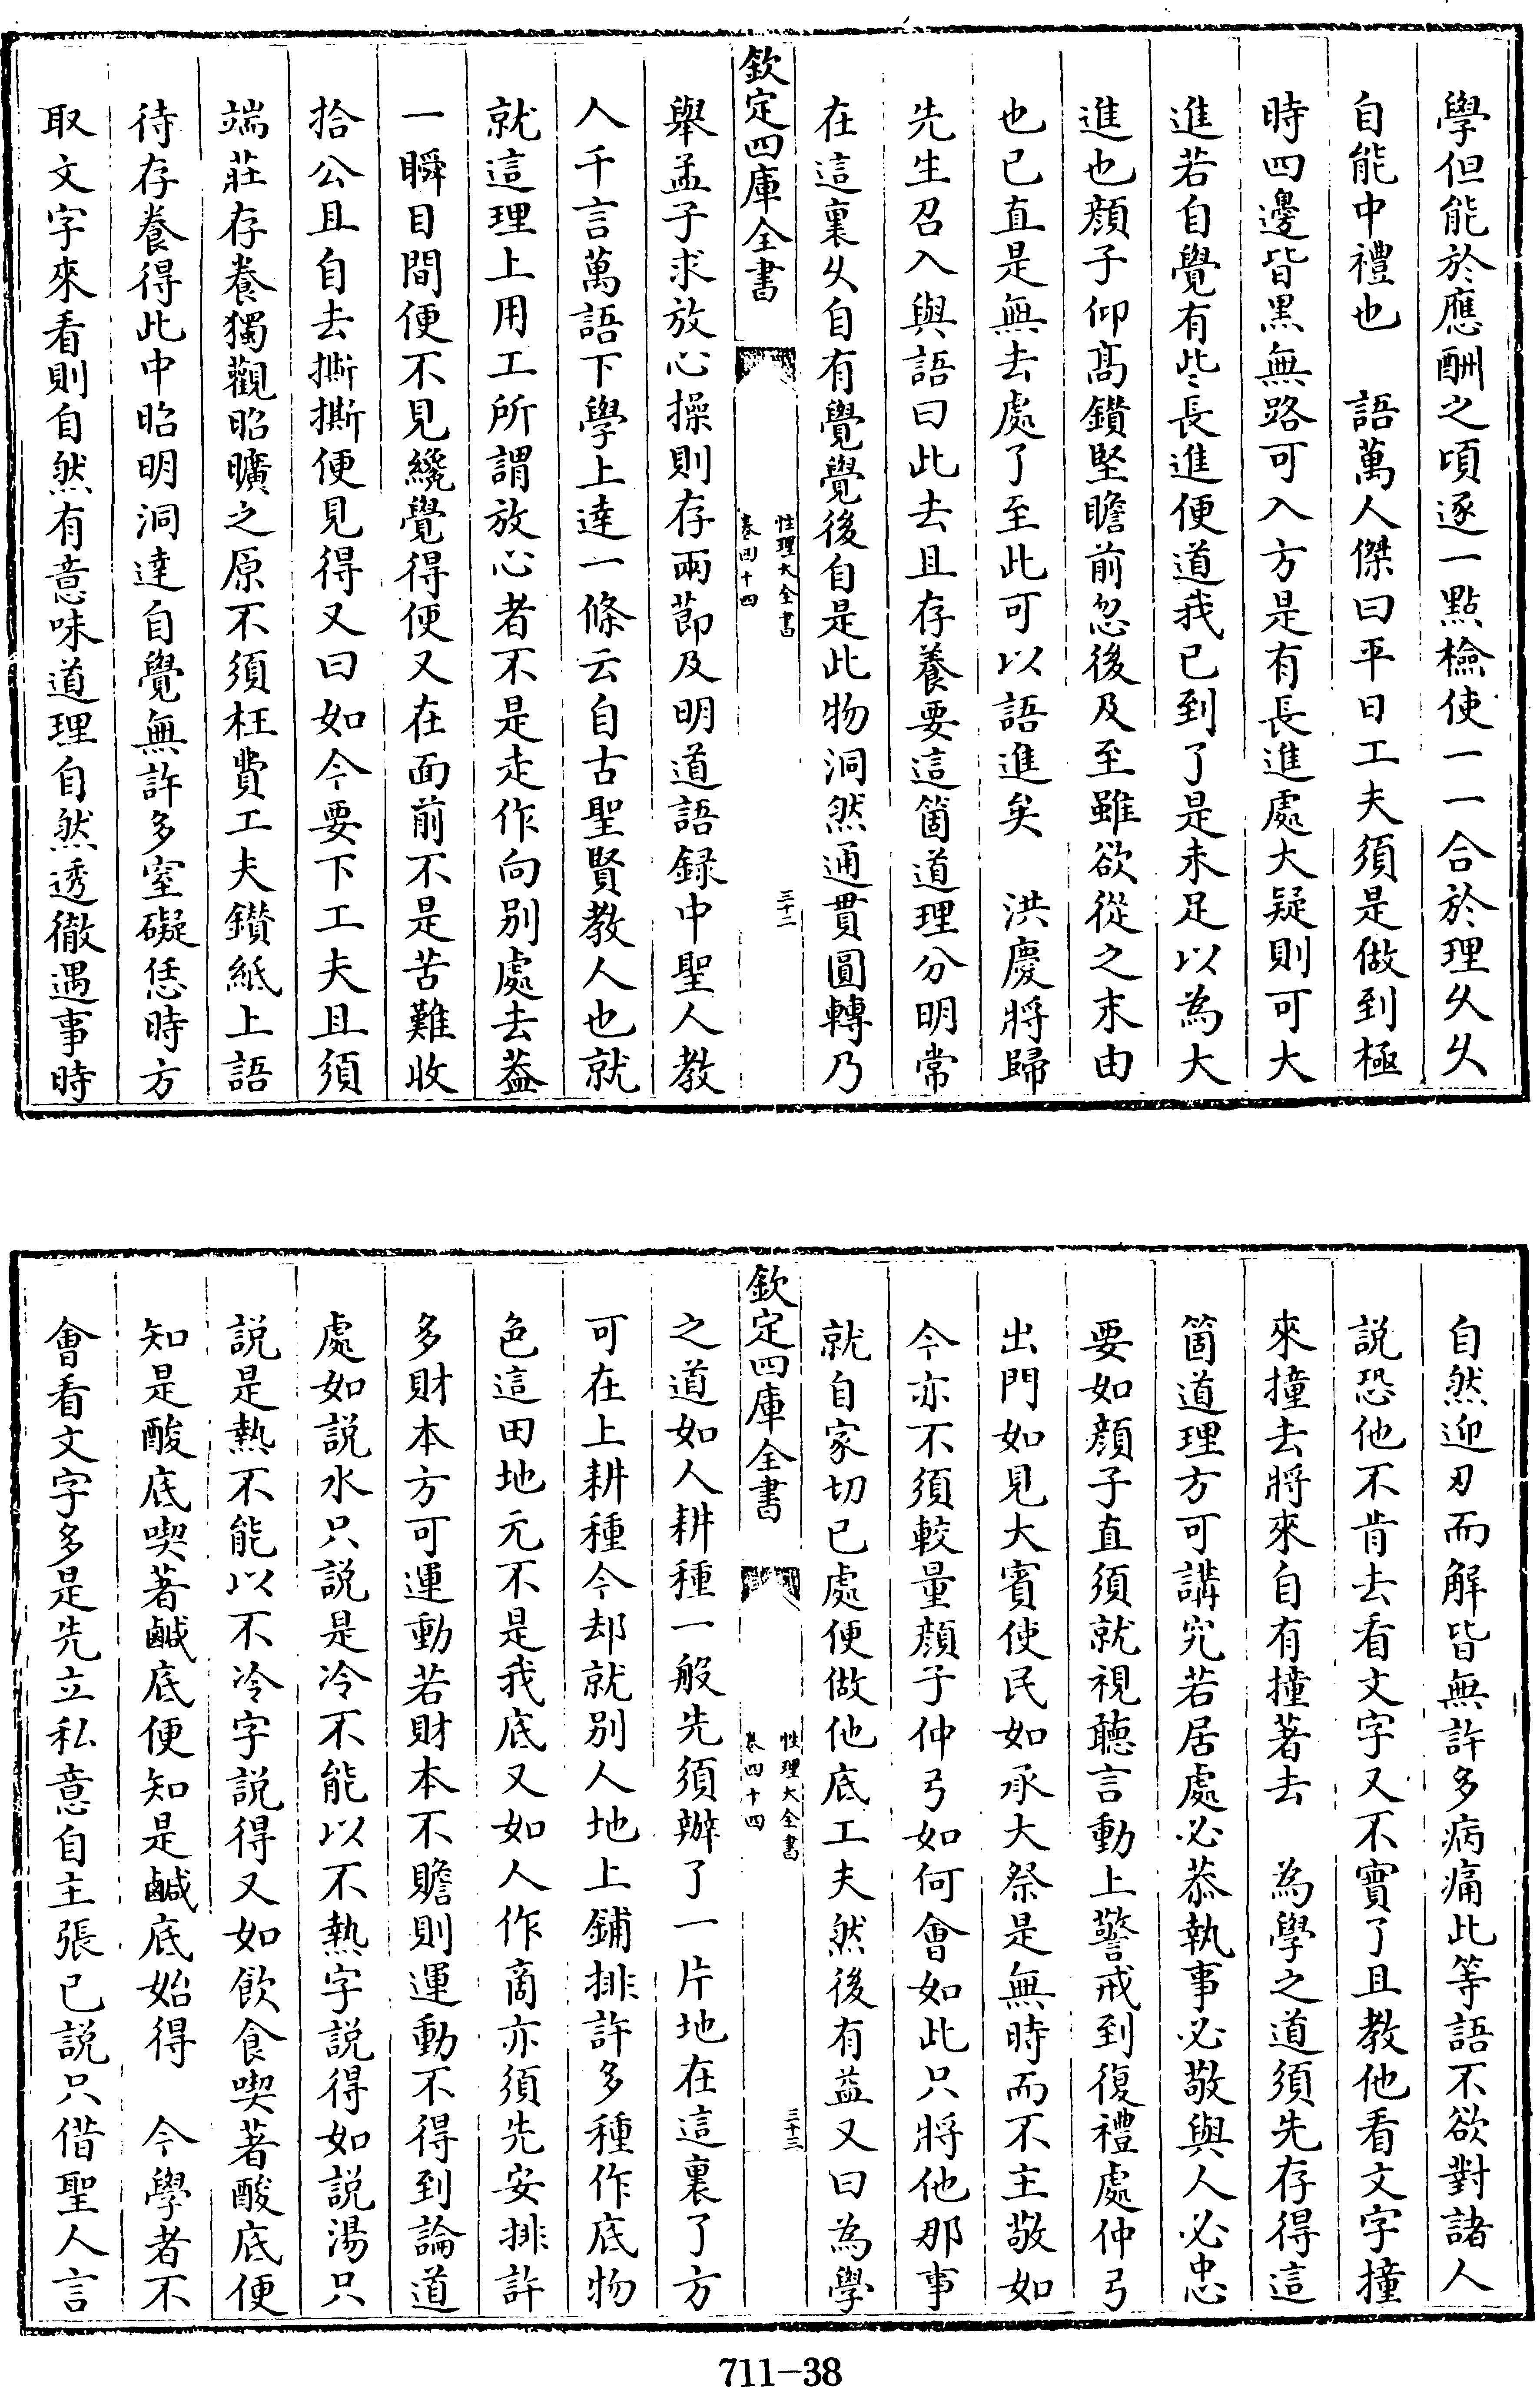 學但能於應酬之頃逐一點檢使一一合於理久久
自能中禮也　語萬人傑曰平日工夫須是做到極
時四邊皆黑無路可入方是有長進處大疑則可大
進若自覺有些長進便道我已到了是未足以為大
進也顔子仰髙鑽堅瞻前忽後及至雖欲從之末由
也已直是無去處了至此可以語進矣　洪慶將歸
先生召入與語曰此去且存養要這箇道理分明常
在這裏久自有覺覺後自是此物洞然通貫圓轉乃
欽定四庫全書
性理大全書
卷四十四
三十二
舉孟子求放心操則存兩節及明道語録中聖人教
人千言萬語下學上達一條云自古聖賢教人也就
就這理上用工所謂放心者不是走作向别處去葢
一瞬目間便不見纔覺得便又在面前不是苦難收
拾公且自去撕撕便見得又曰如今要下工夫且須
端莊存養獨觀昭曠之原不須枉費工夫鑚紙上語
待存養得此中昭明洞達自覺無許多窒礙恁時方
取文字來看則自然有意味道理自然透徹遇事時
自然迎刃而解皆無許多病痛此等語不欲對諸人
説恐他不肯去看文字又不實了且教他看文字撞
來撞去將來自有撞著去　為學之道須先存得這
箇道理方可講究若居處必恭執事必敬與人必忠
要如顔子直須就視聽言動上警戒到復禮處仲弓
出門如見大賓使民如承大祭是無時而不主敬如
今亦不須較量顔子仲弓如何會如此只將他那事
就自家切已處便做他底工夫然後有益又曰為學
欽定四庫全書
性理大全書
卷四十四
三十三
之道如人耕種一般先須辦了一片地在這裏了方
可在上耕種今却就别人地上鋪排許多種作底物
色這田地元不是我底又如人作商亦須先安排許
多財本方可運動若財本不贍則運動不得到論道
處如説水只説是冷不能以不熱字説得如説湯只
説是熱不能以不冷字説得又如飲食喫著酸底便
知是酸底喫著鹹底便知是鹹底始得　今學者不
會看文字多是先立私意自主張已説只借聖人言
711-38